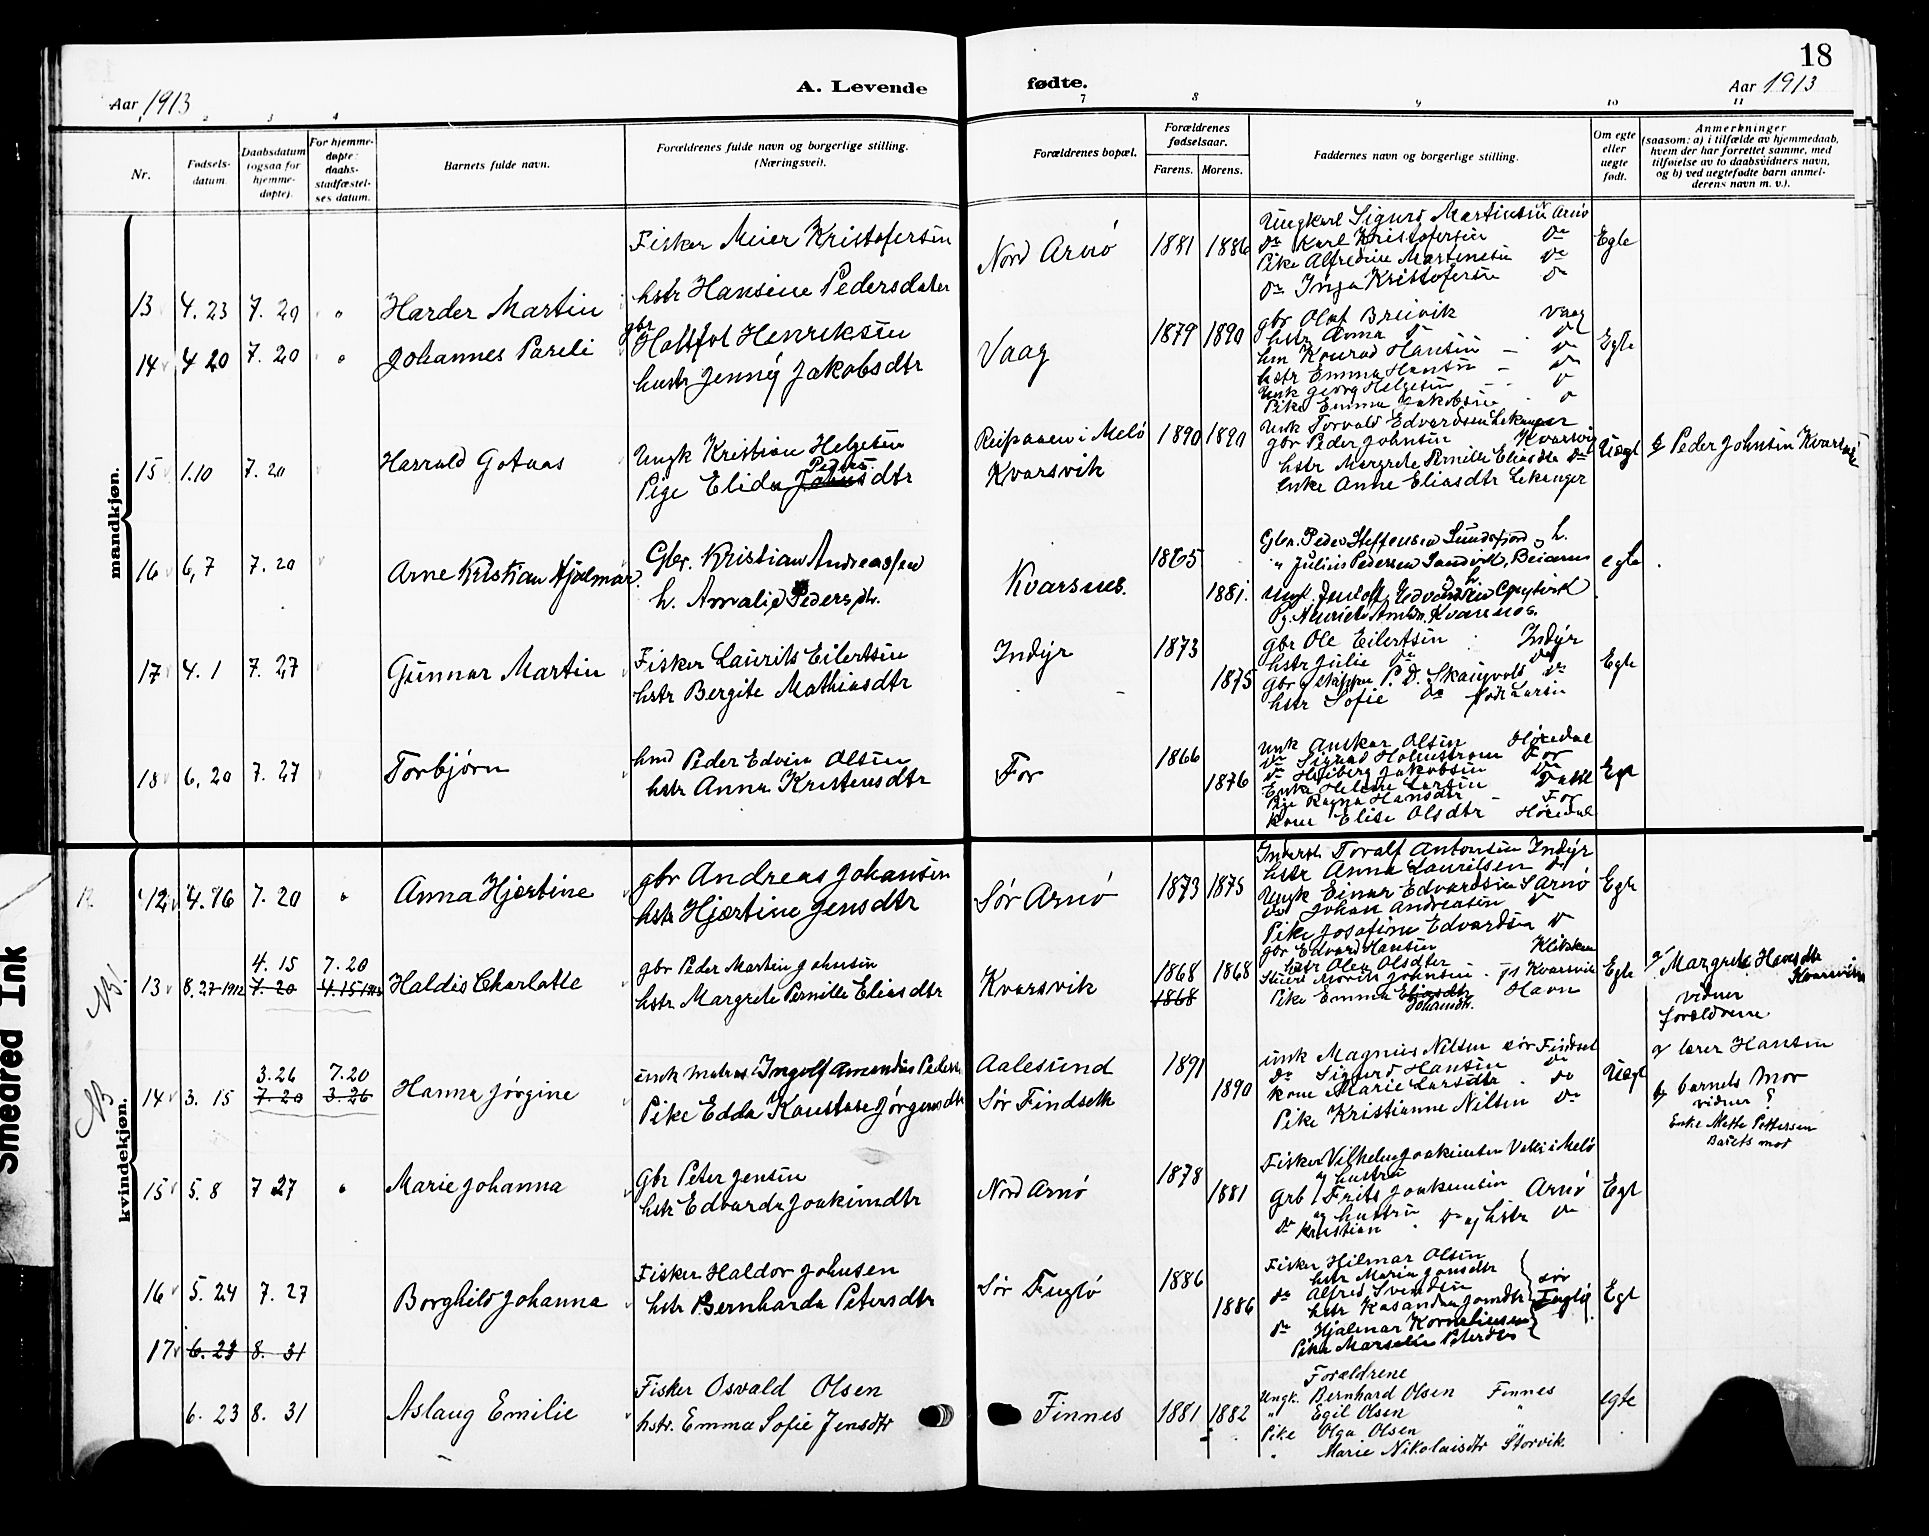 18
A. Levende fødte.
Aar 1913
Aar 1913
1 2 3 4 7 8 9 10 11
Nr.
Fødsels-datum.
Daabsdatum (ogsaa for hjemme-døpte).
For hjemme-døpte: daabs-stadfæstel-ses datum.
Barnets fulde navn.
Forældrenes fulde navn og borgerlige stilling. (Næringsvei).
Forældrenes bopæl.
Forældrenes fødselsaar.
Farens. Morens.
Faddernes navn og borgerlige stilling.
Om egte eller uegte født.
Anmerkninger
(saasom: a) i tilfælde av hjemmedaab,
hvem der har forrettet samme, med
tilføielse av to daabsvidners navn,
og b) ved uegtefødte barn anmel-
derens navn m. v.).
mandkjøn.
13 4. 23 7. 20 " Harder Martin
Fisker Meier Kristofersen
hstr Hansine Pedersdater
Nord Arnö 1881 1886
Ungkarl Sigurd Martinsen N Arnö
do Karl Kristofersen do
Pike Alfredine Martinsen do
do Inga Kristofersen do
Egte
14 4 20 7. 20 " Johannes Pareli
gbr Hallfol Henriksen
hustr Jenny Jakobsdtr
Vaag 1879 1890
gbr Olaf Breivik Vaag
hstr Anna do
hm Konrad Hansen - do
hstr Emma Hansen - do
Unk Georg Helgesen
Pike Emma Jakobsen
Egte
15 1.10 7. 20 Harrald Gotaas
Ungk Kristian Helgesen
Pige Elida Peders Johnsdtr
Reipaaen i Melö
Kvarsvik
1890 1890
Unk Torvald Edvardsen Lekanger
gbr Peder Johnsen Kvarsvik
hstr Margrete Pernille Eliasdtr do
Enke Anne Eliasdtr Lekanger
Uegt
b/ Peder Johnsen Kvarsvik
16 6, 7 7. 20 Arne Kristian Hjalmar
Gbr. Kristian Andreassen
h. Amalie Pedersdtr.
Kvarsnes. 1865 1881.
Gbr. Peder Steffensen Sundsfjord og h.
" Julius Pedersen Sandvik, Beiaren
egte
17 4. 1 7. 27 Gunnar Martin
Fisker Laurits Eilertsen
hstr Bergite Mathiasdtr
Indyr 1873 1875
gbr Ole Eilertsen Indyr
hstr Julie do do
gbr og skipper P. D. Skaugvold do
hstr Sofie do
Egte
18 6, 20 7. 27 Torbjørn
hmd Peder Edvin Olsen
hstr Anna Kristensdtr
For 1866 1876
Unk Anskar Olsen Höredal
do Sigurd Holmstrøm For
do Heiberg Jakobsen do
Enke Helene Larsen
Pige Ragna Hansdtr - For
Kone Elise Olsdtr Höredal
Egt
kvindekjøn.
12 4. 16 7. 20 " Anna Hjørtine
gbr Andreas Johansen
hstr Hjørtine Jensdtr
Sør Arnö 1873 1875
Inderst Toralf Antonsen Indyr
hstr Anna Lauritsen do
Ungk Einar Edvardsen S Arnö
do Johan Andreasen do
Pike Josefine Edvardsen do
Egte
NB!
13 8. 27 1912 4. 15 7. 20
7. 20 4.15 1913
Haldis Charlotte
gbr Peder Martin Johnsen
hstr Margrete Pernille Eliasdtr
Kvarsvik 1868 1868
1868
gbr Edvard Hansen
hstr Olea Olsdter
Pike Emma Eliasdtr Havn
Johansdtr.
Egte
a/ Margrete Hansdtr
Kvarsvik
vidner
forældrene
NB
14 3. 15 3.26 7.20
7. 20 3.26
Hanna Jørgine
unk matros Ingolf Amandus Peders
Pike Edda Konstase Jørgensdtr
Aalesund
Sör Findseth
1891 1890
unk Magnus Nilsen sör Findset
do Sigurd Hansen do
Kone Marie Larsdtr. do
Pike Kristianne Nilsen do
Uegt
a/ lærer Hansen
b/ barnets mor
vidner :
Enke Mette Pettersen
Barets mor
15 5. 8 7 27 " Marie Johanna
Gbr Peter Jensen
hstr Edvarda Joakimdtr
Nord Arnö 1878 1881
Fisker Vilhelm Joakimsen i Melö
og hustru
Grb Frits Joakimsen Arnö
og hustru
do Kristian do og hstr do
Egt
16 5. 24 7. 27 Borghild Johanna
Fisker Haldor Johnsen
hstr Bernharda Petersdtr
Sör Fuglö 1886 1886
Fisker Hilmar Olsen
hstr Maria Jonsdtr
do Alfred Svendsen
hstr Kasandra Jonsdtr
do Hjalmar Korneliussen
Pike Marselie Petersdtr
sör Fuglö
Egt
17 6. 23 8. 31
6. 23 8. 31 Aslaug Emilie
Fisker Osvald Olsen
hstr. Emma Sofie Jensdtr
Finnes 1881 1882
Forældrene
Ungk. Bernhard Olsen Finnes
" Egil Olsen "
Pike Olga Olsen "
" Marie Nikolaisdtr Storvik.
egte
Smeared Ink